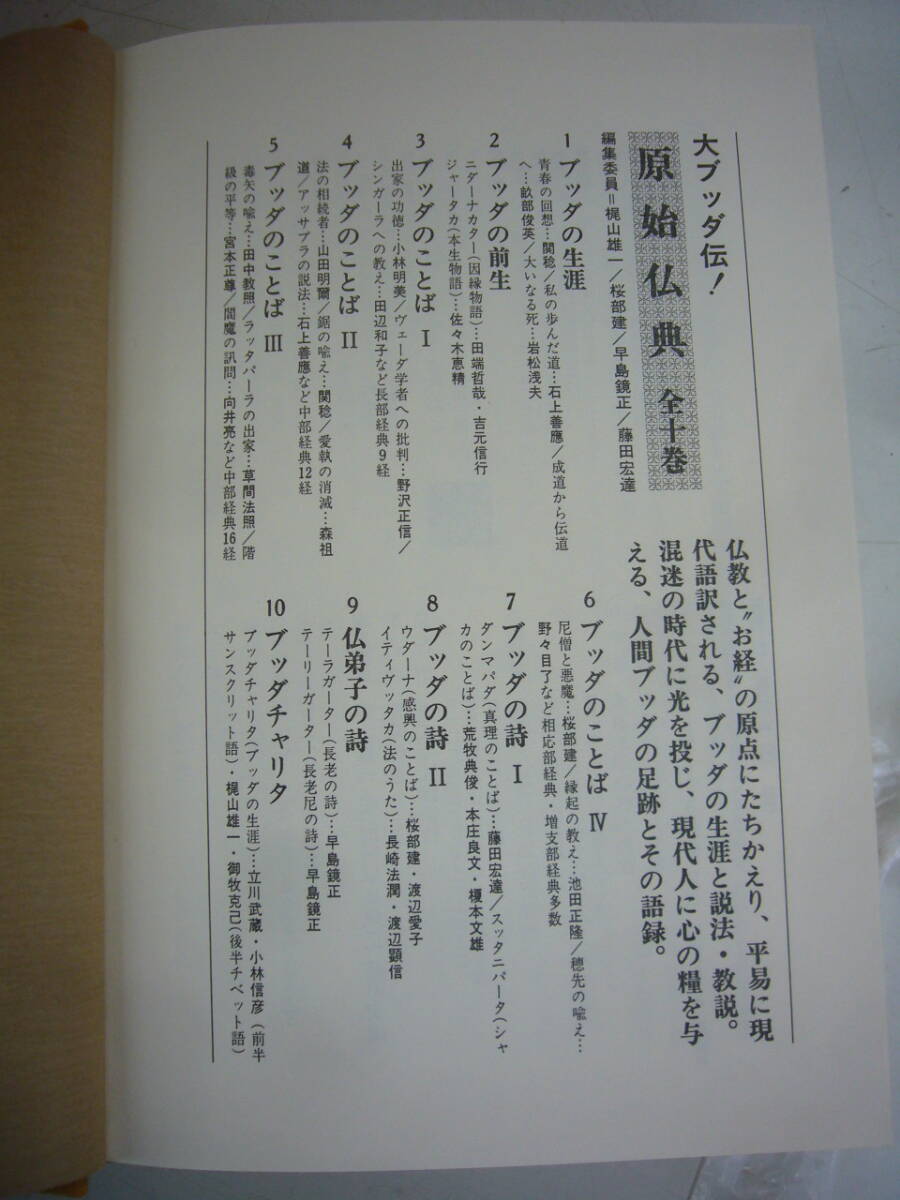 大ブッダ伝!
原始仏典 全十巻
編集委員=梶山雄一/桜部建/早島鏡正/藤田宏達
仏教と〝お経〟の原点にたちかえり、平易に現
代語訳される、ブッダの生涯と説法・教説。
混迷の時代に光を投じ、現代人に心の糧を与
える、人間ブッダの足跡とその語録。
1 ブッダの生涯
青春の回想…関稔/私の歩んだ道…石上善應/成道から伝道
へ…畝部俊英/大いなる死…岩松浅夫
2 ブッダの前生
ニダーナカター(因縁物語)…田端哲哉・吉元信行
ジャータカ(本生物語)…佐々木恵精
3 ブッダのことば Ⅰ
出家の功徳…小林明美/ヴェーダ学者への批判…野沢正信/
シンガーラへの教え…田辺和子など長部経典9経
4 ブッダのことば Ⅱ
法の相続者…山田明爾/鋸の喩え…関稔/愛執の消滅…森祖
道/アッサプラの説法…石上善應など中部経典12経
5 ブッダのことば Ⅲ
毒矢の喩え…田中教照/ラッタパーラの出家…草間法照/階
級の平等…宮本正尊/閻魔の訊問…向井亮など中部経典16経
6 ブッダのことば Ⅳ
尼僧と悪魔…桜部建/縁起の教え…池田正隆/穂先の喩え…
野々目了など相応部経典・増支部経典多数
7 ブッダの詩 Ⅰ
ダンマパダ(真理のことば)…藤田宏達/スッタニパータ(シャ
カのことば)…荒牧典俊・本庄良文・榎本文雄
8 ブッダの詩 Ⅱ
ウダーナ(感興のことば)…桜部建・渡辺愛子
イティヴッタカ(法のうた)…長崎法潤・渡辺顕信
9 仏弟子の詩
テーラガーター(長老の詩)…早島鏡正
テーリーガーター(長老尼の詩)…早島鏡正
10 ブッダチャリタ
ブッダチャリタ(ブッダの生涯)…立川武蔵・小林信彦(前半
サンスクリット語)・梶山雄一・御牧克己(後半チベット語)